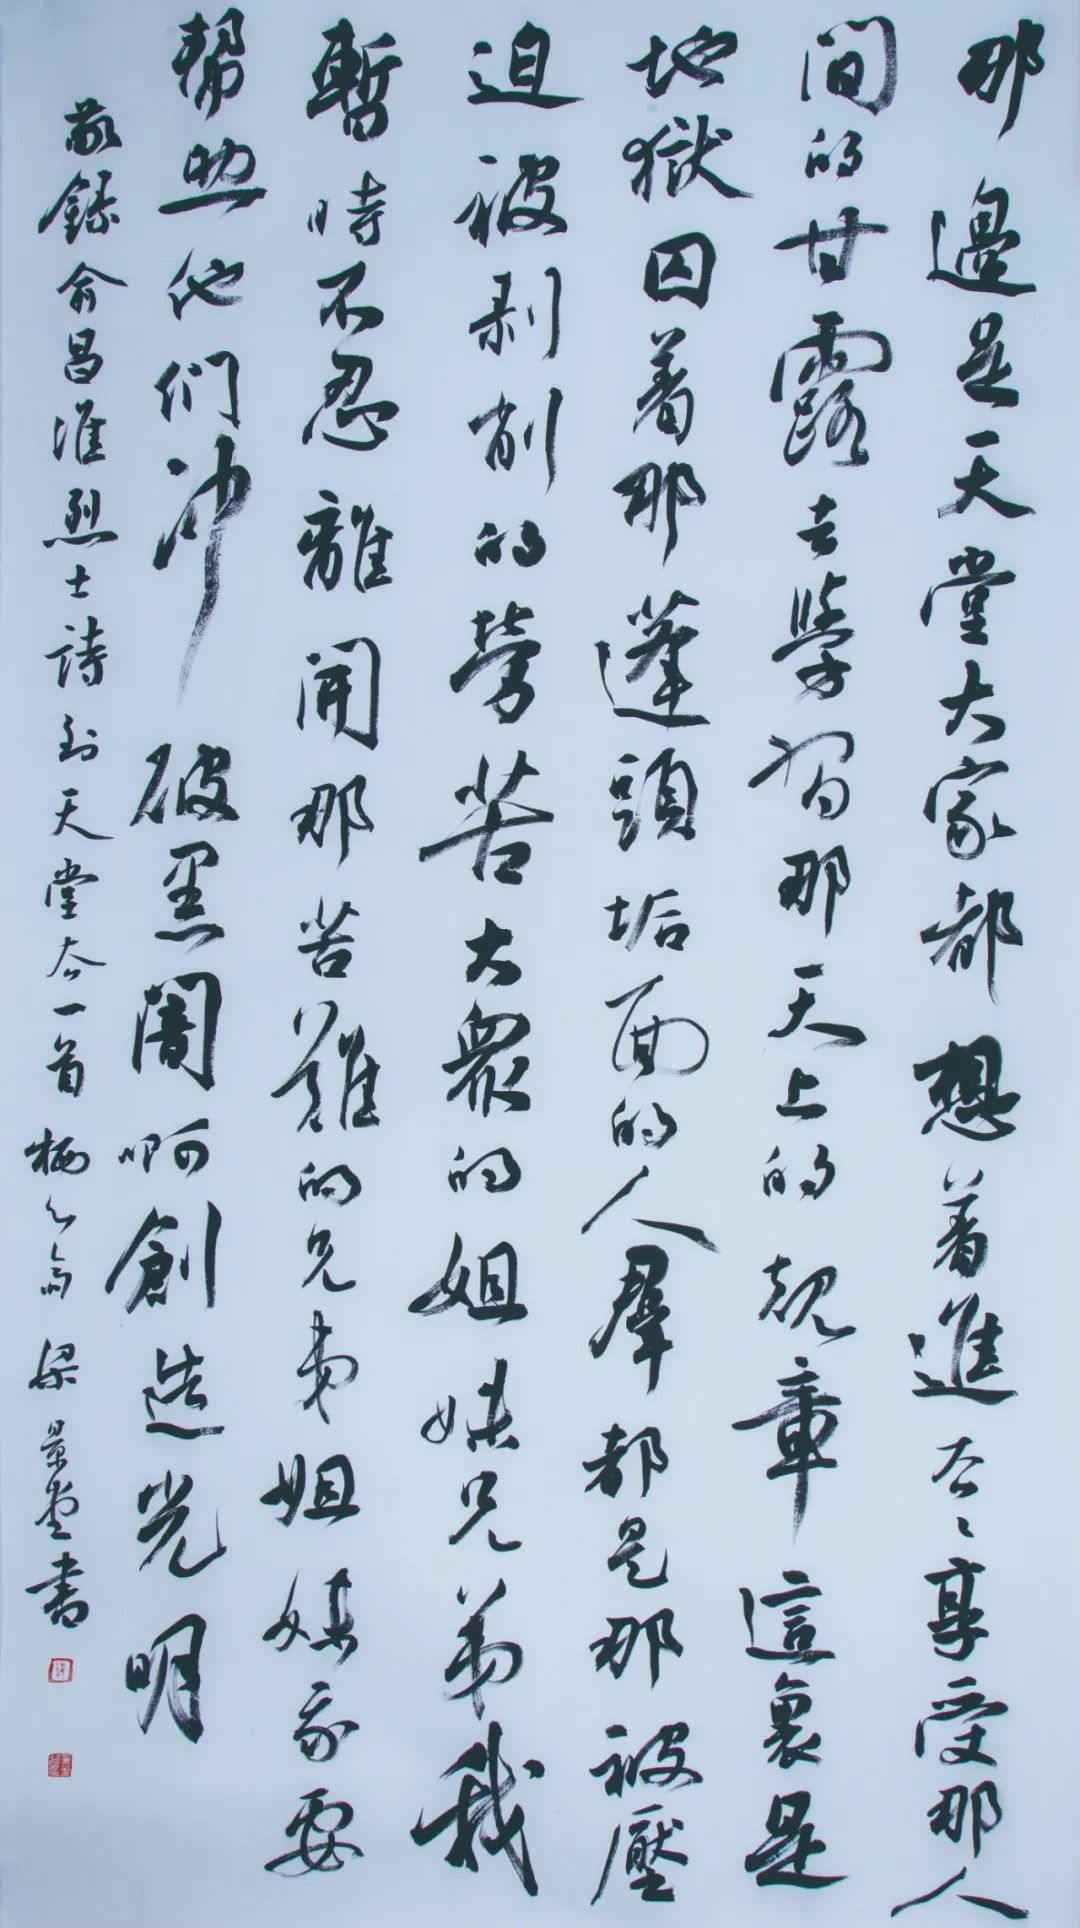 那邊是天堂大家都想着進去々享受那人
間的甘露去學習那天上的規章這裏是
地獄囚着那蓬頭垢面的人羣都是那被壓
迫被剥削的勞苦大衆的姐妹兄弟我
暫時不忍離開那苦難的兄弟姐妹我要
帮助他們冲破黑闇啊創造光明
敬錄俞昌淮烈士詩到天堂去一首 梁景堂書